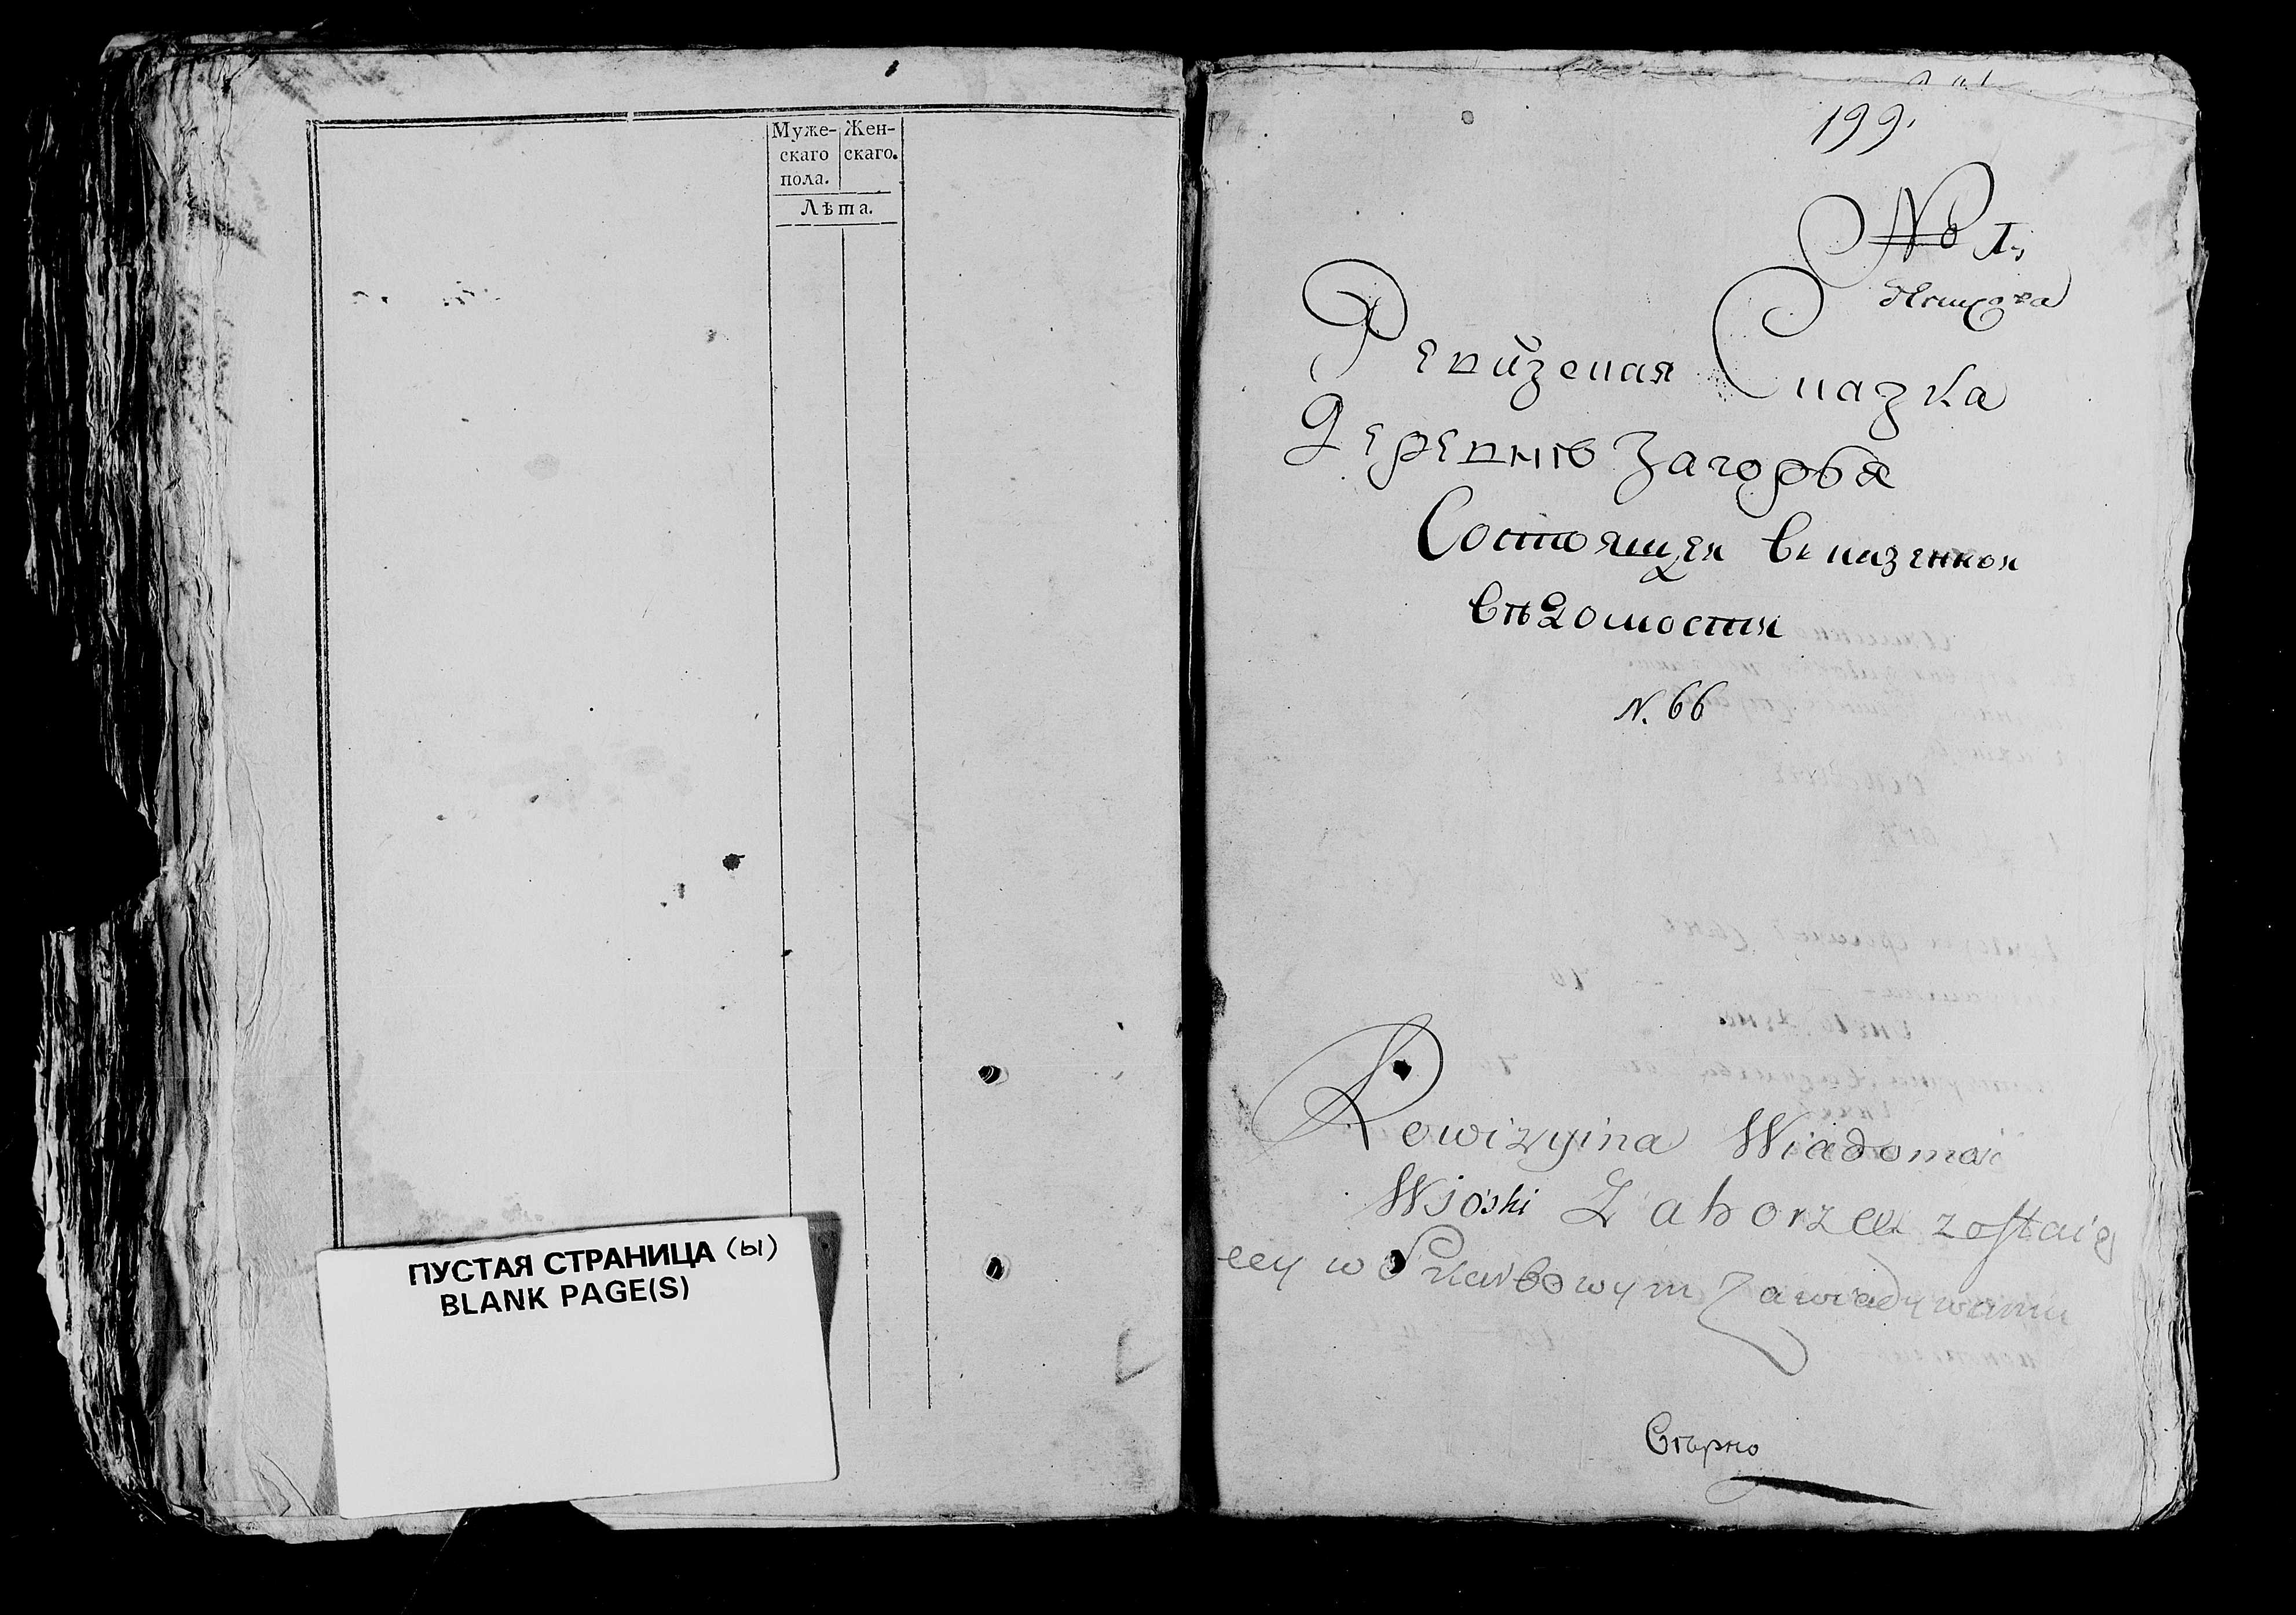 Муже- Жен-
скаго скаго.
пола.
Лѣта.
ПУСТАЯ СТРАНИЦА (Ы)
BLANK PAGE(S)
199.
No I,
Ревизская Сказка
Деревнѣ Загорья
Состоящея въ казенной
вѣдомости
N. 66
Rewizyina Wiadomość
Wioski Zahorza zostaią
cey w Skarbowym Zawiadywaniu
Вѣрно